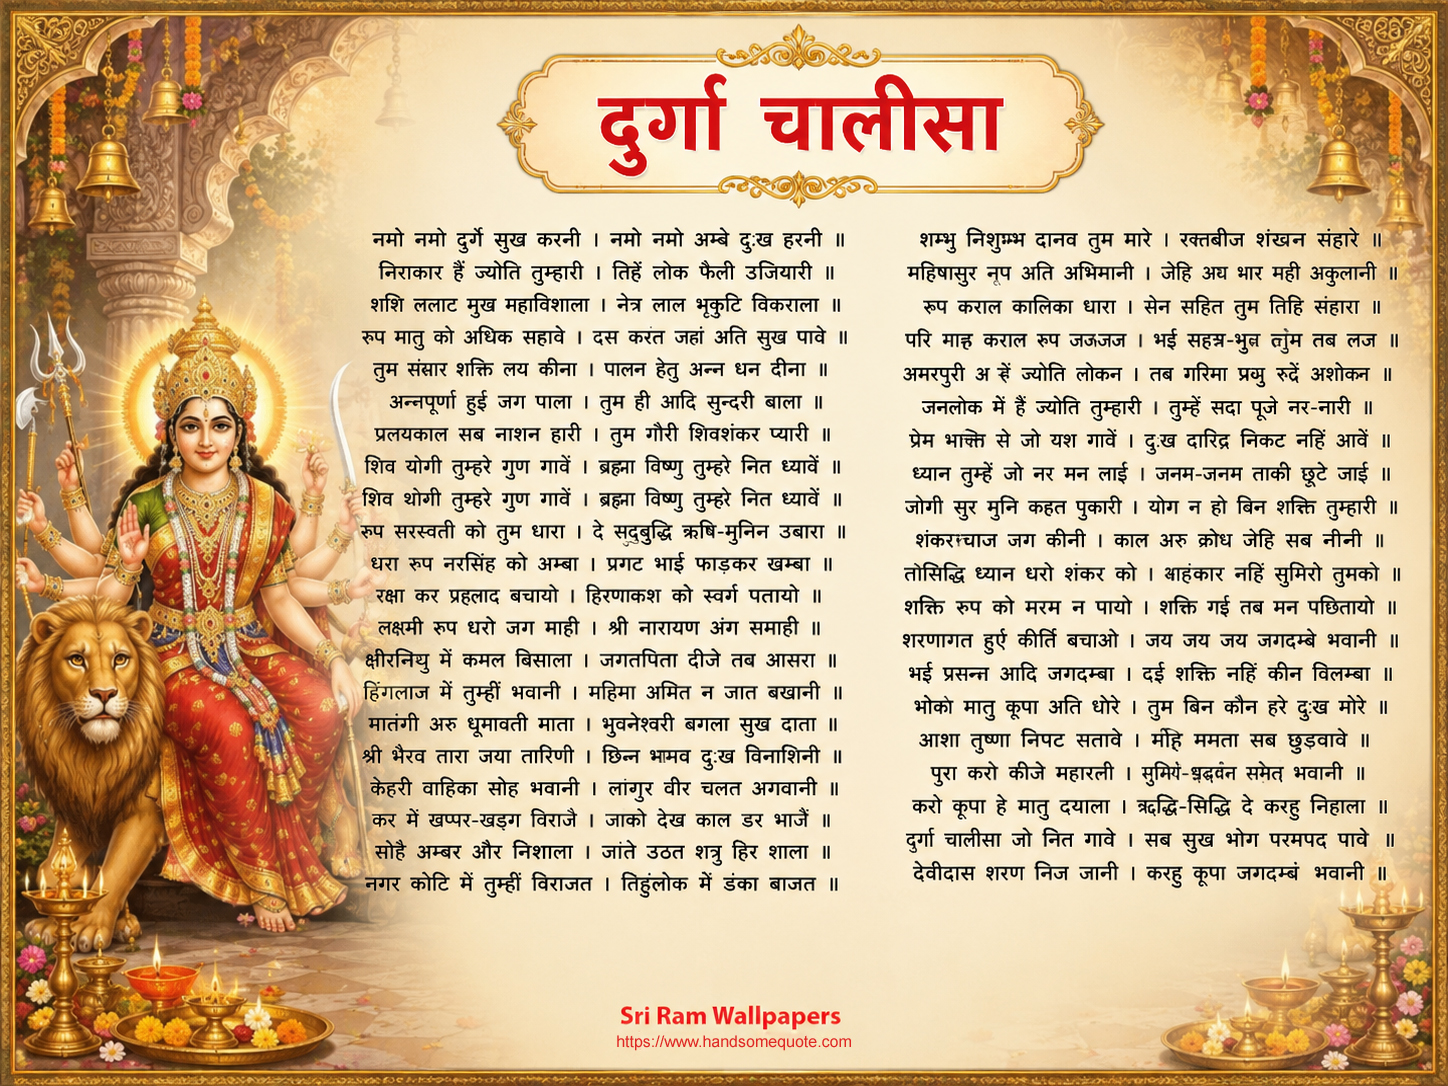 दुर्गा चालीसा
नमो नमो दुर्गे सुख करनी । नमो नमो अम्बे दुःख हरनी ॥
निराकार हैं ज्योति तुम्हारी । तिहें लोक फैली उजियारी ॥
शशि ललाट मुख महाविशाला । नेत्र लाल भृकुटि विकराला ॥
रुप मातु को अधिक सहावे । दस करंत जहां अति सुख पावे ॥
तुम संसार शक्ति लय कीना । पालन हेतु अन्न धन दीना ॥
अन्नपूर्णा हुई जग पाला । तुम ही आदि सुन्दरी बाला ॥
प्रलयकाल सब नाशन हारी । तुम गौरी शिवशंकर प्यारी ॥
शिव योगी तुम्हरे गुण गावें । ब्रह्मा विष्णु तुम्हरे नित ध्यावें ॥
शिव थोगी तुम्हरे गुण गावें । ब्रह्मा विष्णु तुम्हरे नित ध्यावें ॥
रुप सरस्वती को तुम धारा । दे सदुबुद्धि ऋषि-मुनिन उबारा ॥
धरा रुप नरसिंह को अम्बा । प्रगट भाई फाड़कर खम्बा ॥
रक्षा कर प्रहलाद बचायो । हिरणाकश को स्वर्ग पतायो ॥
लक्षमी रुप धरो जग माही । श्री नारायण अंग समाही ॥
क्षीरनिथु में कमल बिसाला । जगतपिता दीजे तब आसरा ॥
हिंगलाज में तुम्हीं भवानी । महिमा अमित न जात बखानी ॥
मातंगी अरु धूमावती माता । भुवनेश्वरी बगला सुख दाता ॥
श्री भैरव तारा जया तारिणी । छिन्न भामव दुःख विनाशिनी ॥
केहरी वाहिका सोह भवानी । लांगुर वीर चलत अगवानी ॥
कर में खप्पर-खड्ग विराजै । जाको देख काल डर भाजैं ॥
सोहै अम्बर और निशाला । जांते उठत शत्रु हिर शाला ॥
नगर कोटि में तुम्हीं विराजत । तिहुंलोक में डंका बाजत ॥
शम्भु निशुम्भ दानव तुम मारे । रक्तबीज शंखन संहारे ॥
महिषासुर नृप अति अभिमानी । जेहि अघ भार मही अकुलानी ॥
रूप कराल कालिका धारा । सेन सहित तुम तिहि संहारा ॥
परि कराल रुप जजजज । भई तब लज ॥
अमरपुरी अ ज्योति लोकन । तब गरिमा रुदें अशोकन ॥
जनलोक में हैं ज्योति तुम्हारी । तुम्हें सदा पूजे नर-नारी ॥
प्रेम भाक्ति से जो यश गावें । दुःख दारिद्र निकट नहिं आवें ॥
ध्यान तुम्हें जो नर मन लाई । जनम-जनम ताकी छूटे जाई ॥
जोगी सुर मुनि कहत पुकारी । योग न हो बिन शक्ति तुम्हारी ॥
जग कीनी । काल अरु क्रोध जेहि सब नीनी ॥
तोसिद्धि ध्यान धरो शंकर को । नहिं सुमिरो तुमको ॥
शक्ति रुप को मरम न पायो । शक्ति गई तब मन पछितायो ॥
शरणागत हुऐ कीर्ति बचाओ । जय जय जय जगदम्बे भवानी ॥
भई प्रसन्न आदि जगदम्बा । दई शक्ति नहिं कीन विलम्बा ॥
भोको मातु कूपा अति धोरे । तुम बिन कौन हरे दुःख मोरे ॥
आशा तुष्णा निपट सतावे । ममता सब छुड़वावे ॥
पुरा करो कीजे महारली । समेत भवानी ॥
करो कूपा हे मातु दयाला । ऋद्धि-सिद्धि दे करहु निहाला ॥
दुर्गा चालीसा जो नित गावे । सब सुख भोग परमपद पावे ॥
देवीदास शरण निज जानी । करहु कूपा जगदम्बं भवानी ॥
Sri Ram Wallpapers
https://www.handsomequote.com